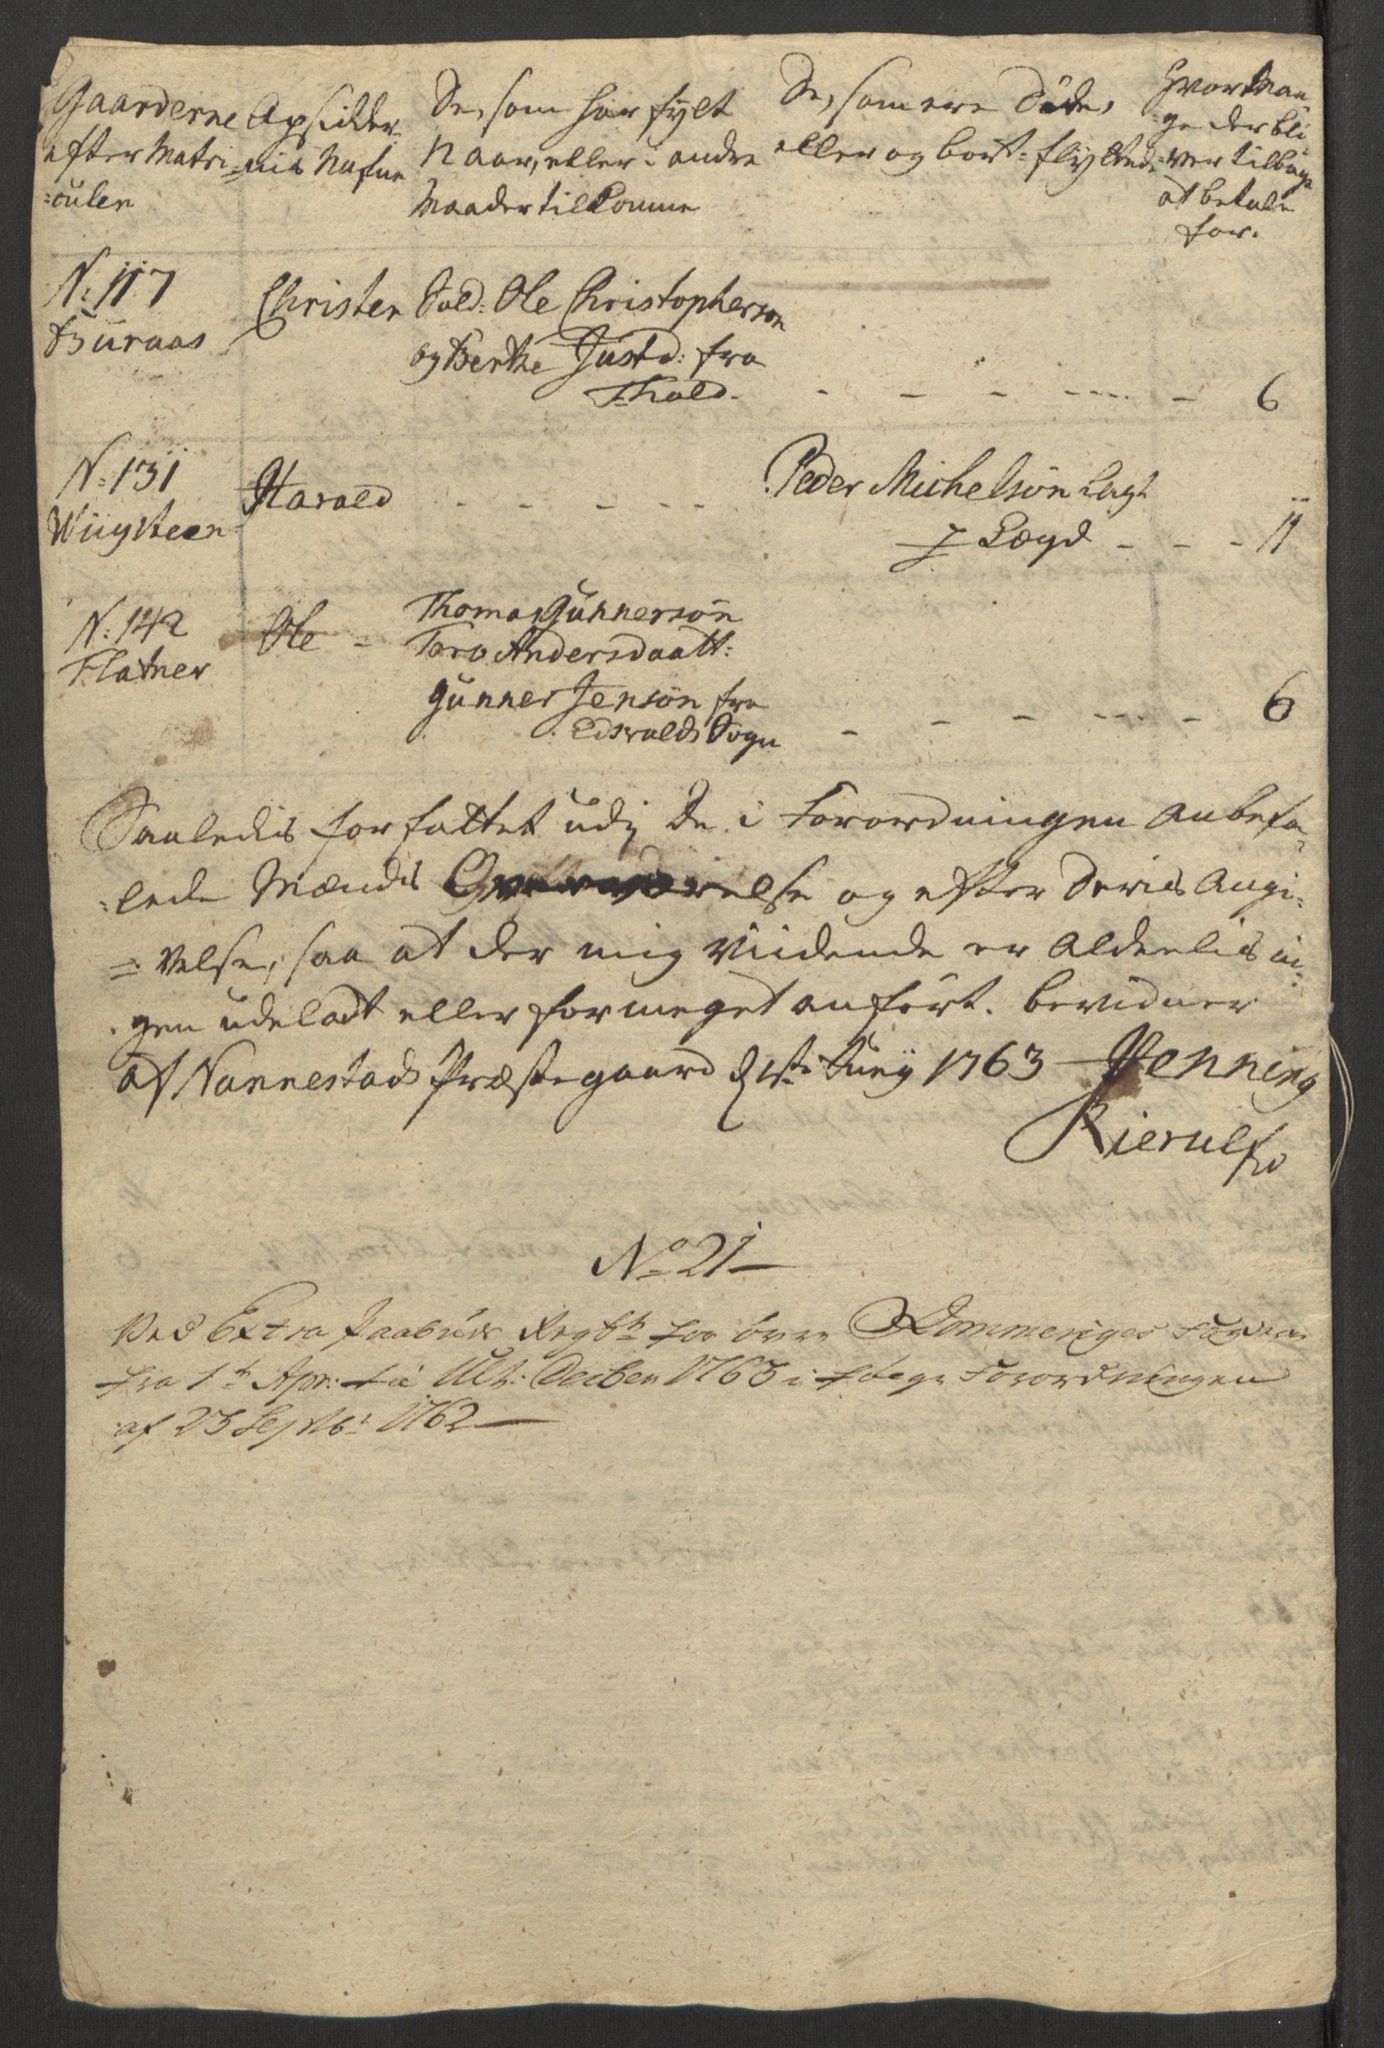 Gaarderne efter Matri=culen
Opsidder=nis Nafne
De, som har fylt
12 aar, eller i andre
Maader tilkomme
De, som ere Døde,
eller og bort=flyttede
Hvor Man=ge der bli=ver tilbage at betale for.
N: 117 Buraas
Christen
Sold: Ole Christophersøn
og Berthe Justd: fra
Thold. - - - - - - 6
N: 131 Wiigsteen
Harald - - - - -
Peder Michelsøn lagt
i Lægd - - - 11
N: 142 Flatner
Ole -
Thomas Gunnersøn
Toro Andersdaatt:
Gunner Jensøn fra
Eidsvolds Sogn - - - - - 6
Saaledis forfattet udj de i Forordningen Anbefa=
=lede Mænds Overværelse og efter Deris Angi=
=velse, saa at der mig Viidende er Aldeelis in=
gen udeladt eller formeget anført. bevidner
af Nannestads Præstegaard d 1ste Junij 1763 Henning
Kierulf
No 21
Ved Extra Skattens Regsk: for øvre Rommeriges Fogderi
fra 1te Apr: til Ult: Decben 1763 i følge Forordningen
af 23 Septbr: 1762